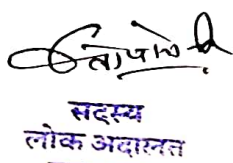 सदस्य
लोक अदालत